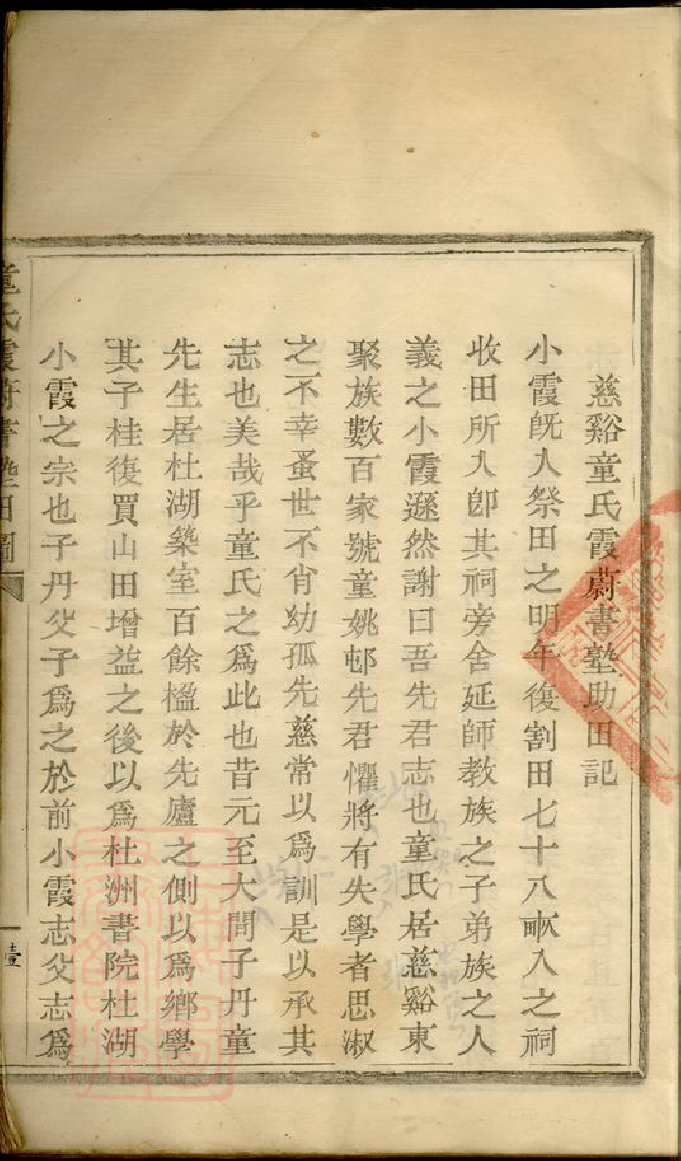 慈谿童氏霞蔚書塾助田記
小霞旣入祭田之明年復割田七十八畞入之祠
收田所入卽其祠旁舍延師教族之子弟族之人
義之小霞遜然謝曰吾先君志也童氏居慈谿東
聚族數百家號童姚邨先君懼將有失學者思淑
之不幸蚤世不肖幼孤先慈常以爲訓是以承其
志也美哉乎童氏之爲此也昔元至大間子丹童
先生居杜湖築室百餘楹於先廬之側以爲鄉學
其子桂復買山田增益之後以爲杜洲書院杜湖
小霞之宗也子丹父子爲之於前小霞志父志爲
童氏霞蔚書塾田圖
壹